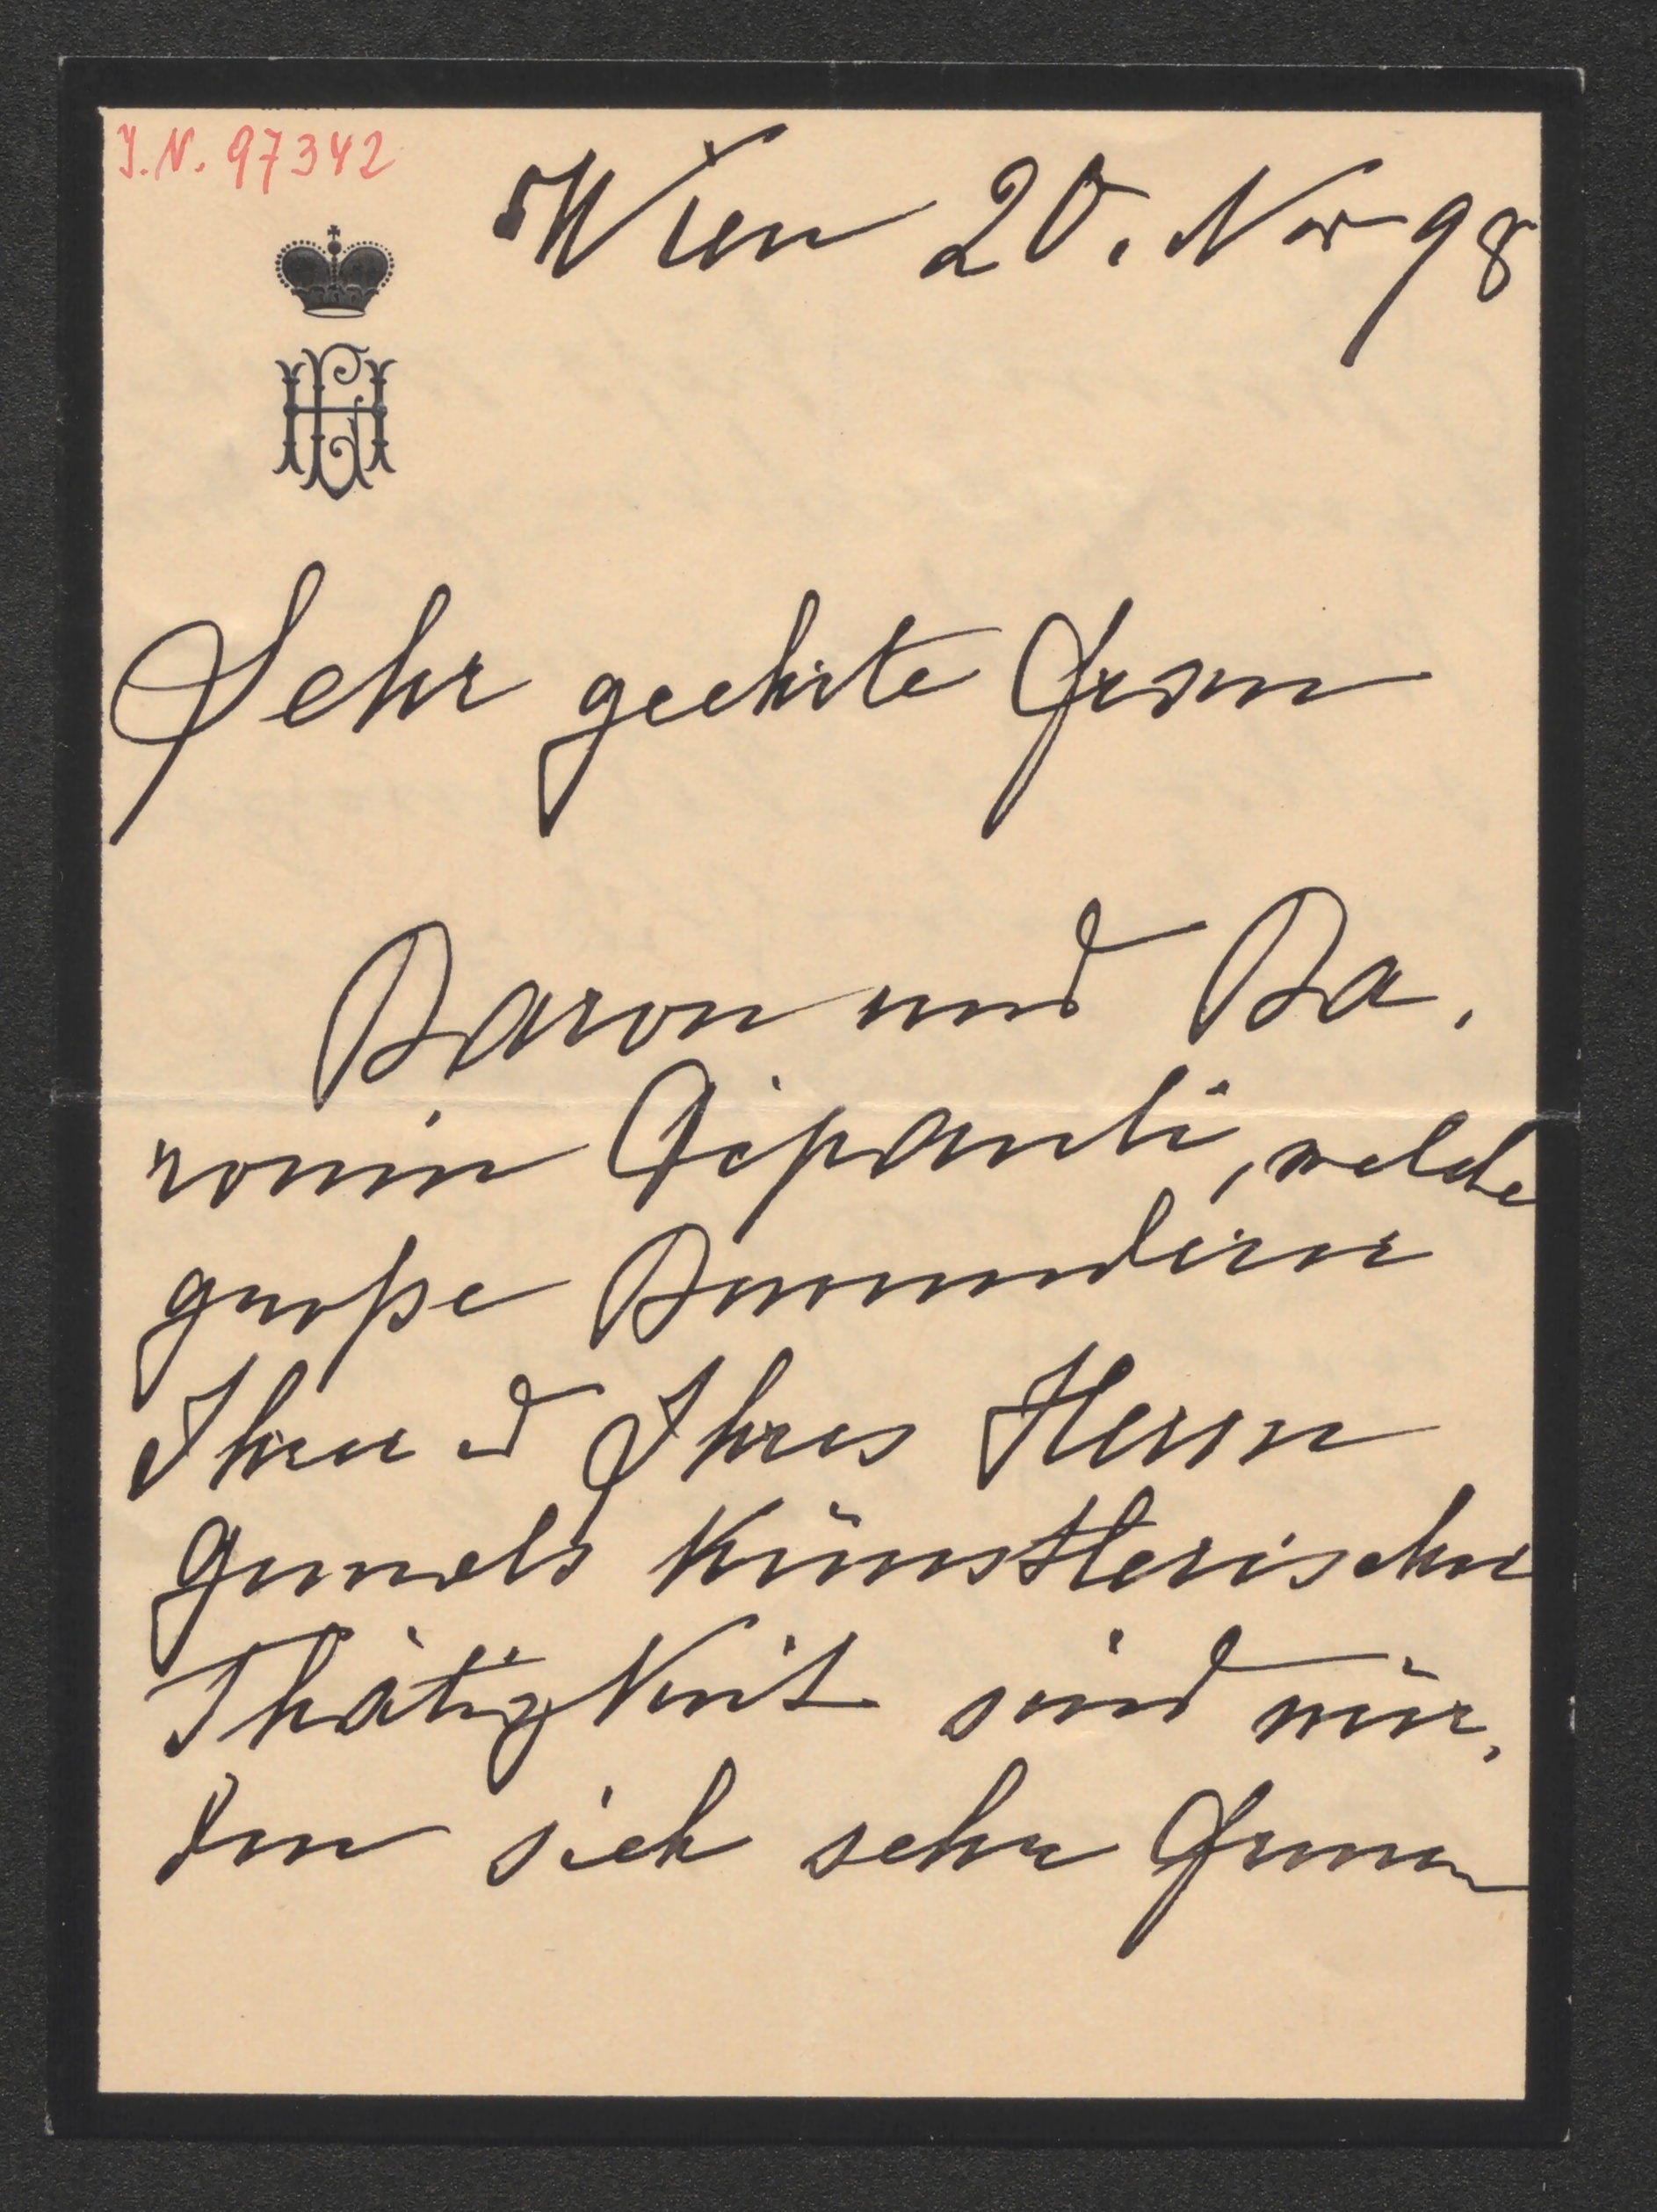 J.N. 97342
Wien 20. Nov 98
Sehr geehrte Frau
Baron und Ba.
ronin Gipanti, welche
große Bewunderer
Ihrer u Ihres Herrn
Gemals künstlerischer
Thätigkeit sind wür,
den sich sehr freuen